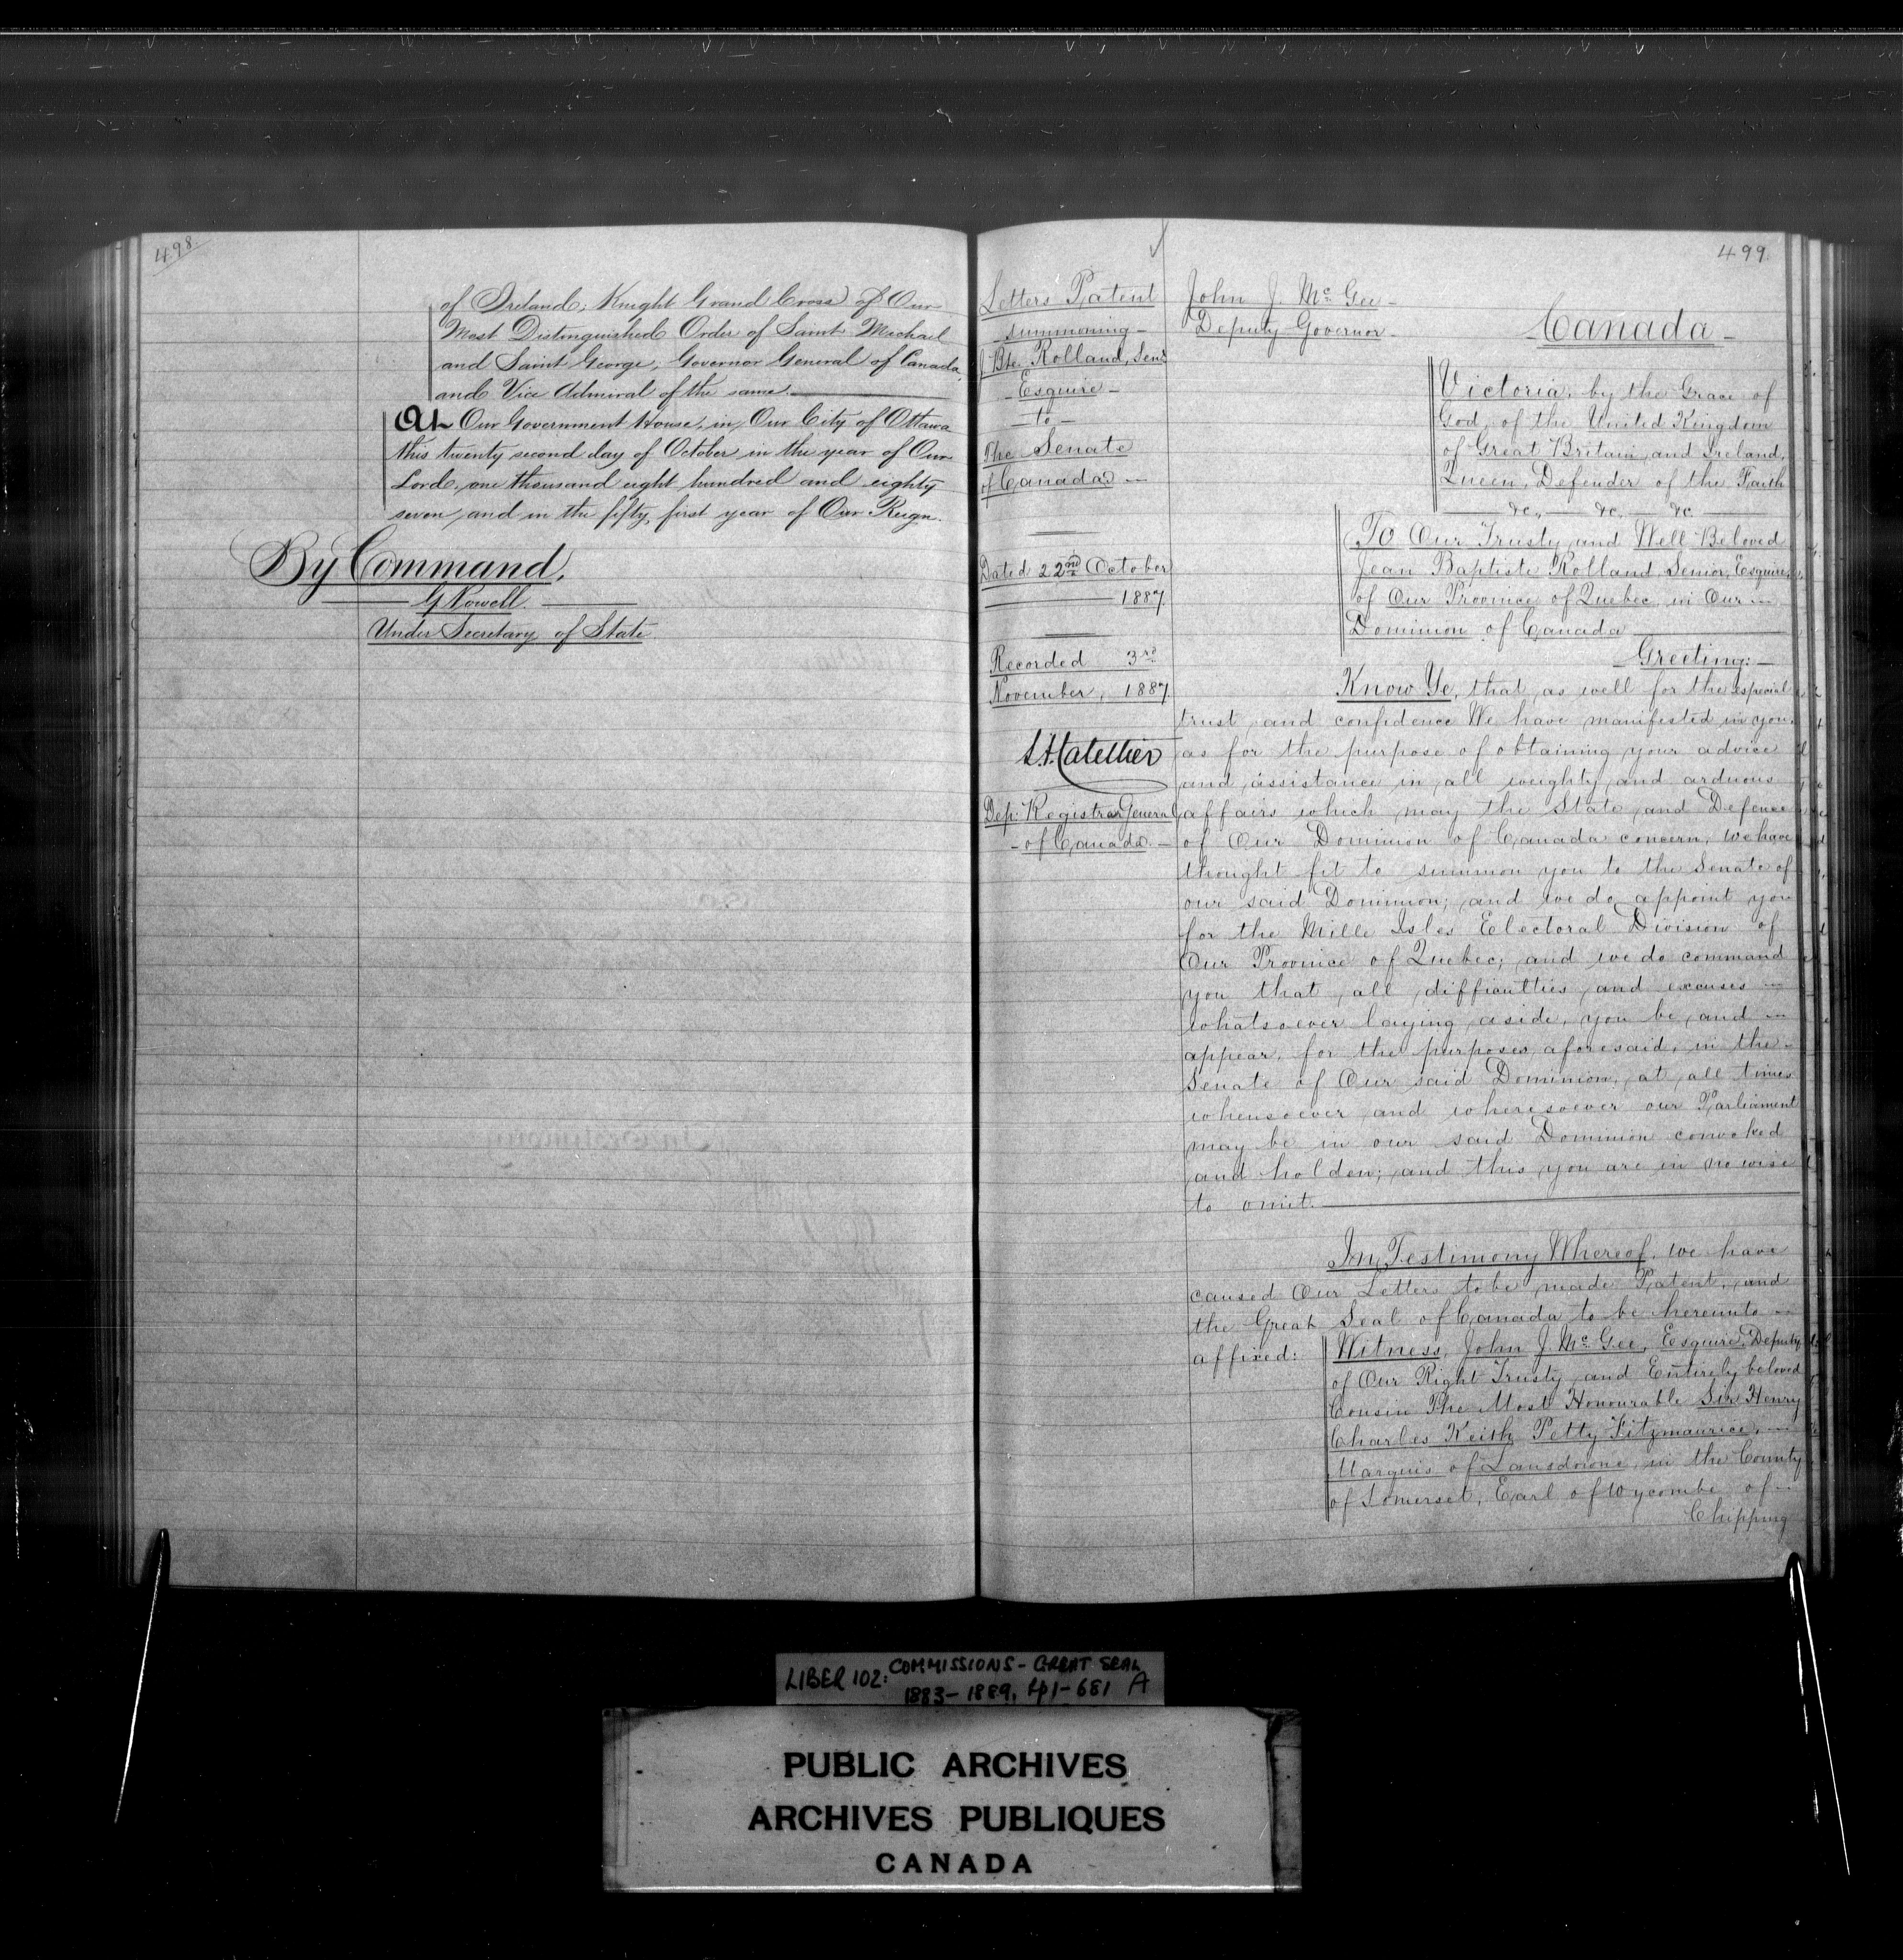 498.
of Ireland; Knight Grand Cross of Our
Most Distinguished Order of Saint Michael
and Saint George, Governor General of Canada,
and Vice Admiral of the same.
At Our Government House, in Our City of Ottawa
this twenty second day of October in the year of Our
Lord, one thousand eight hundred and eighty
seven, and in the fifty first year of Our Reign.
By Command,
G Powell
Under Secretary of State
499
Letters Patent
summoning
J. Bte Rolland, Senr
Esquire
to
The Senate
of Canada
Dated 22nd October
1887
Recorded 3rd
November, 1887
Dep: Registrar General
of Canada.
John J. McGee
Deputy Governor
Canada
Victoria, by the Grace of
God, of the United Kingdom
of Great Britain and Ireland,
Queen, Defender of the Faith
&c., &c., &c
To Our Trusty and Well Beloved
Jean Baptiste Rolland Senior, Esquire,
of Our Province of Quebec in Our
Dominion of Canada
Greeting:
Know Ye, that as well for the especial
trust and confidence We have manifested in you,
as for the purpose of obtaining your advice
and assistance in all weighty and arduous
affairs which may the State and Defence
of Our Dominion of Canada concern, we have
thought fit to summon you to the Senate of
our said Dominion; and we do appoint you
for the Mille Isles Electoral Division of
Our Province of Quebec; and we do command
you that all difficulties and excuses
whatsoever laying aside, you be and
appear, for the purposes aforesaid, in the
Senate of Our said Dominion, at all times
whensoever and wheresoever our Parliament
may be in our said Dominion convoked
and holden; and this you are in no wise
to omit.
In Testimony Whereof, we have
caused Our Letters to be made Patent, and
the Great Seal of Canada to be hereunto
affixed: Witness, John J. McGee, Esquire, Deputy
of Our Right Trusty and Entirely beloved
Cousin The Most Honourable Sir Henry
Charles Keith Petty Fitzmaurice,
Marquis of Lansdowne, in the County
of Somerset, Earl of Wycombe of
Chipping
LIBER 102: COMMISSIONS - GREAT SEAL
1883-1889, pp1-681 A
PUBLIC ARCHIVES
ARCHIVES PUBLIQUES
CANADA